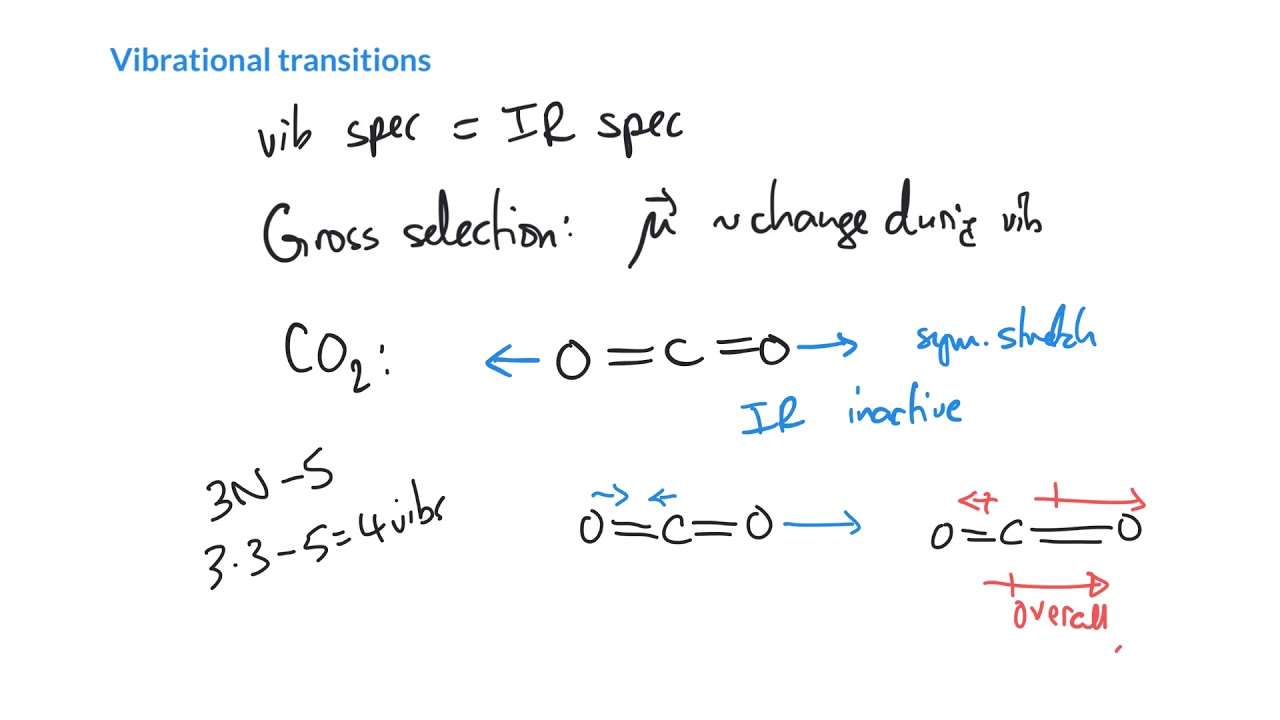 Vibrational transitions
vib spec = IR spec
Gross selection: μ⃗ ~ change during vib
CO₂: ← O = C = O → sym. stretch
IR inactive
3N - 5
3·3 - 5 = 4 vibs
→ ←
O = C = O → O = C = O
overall